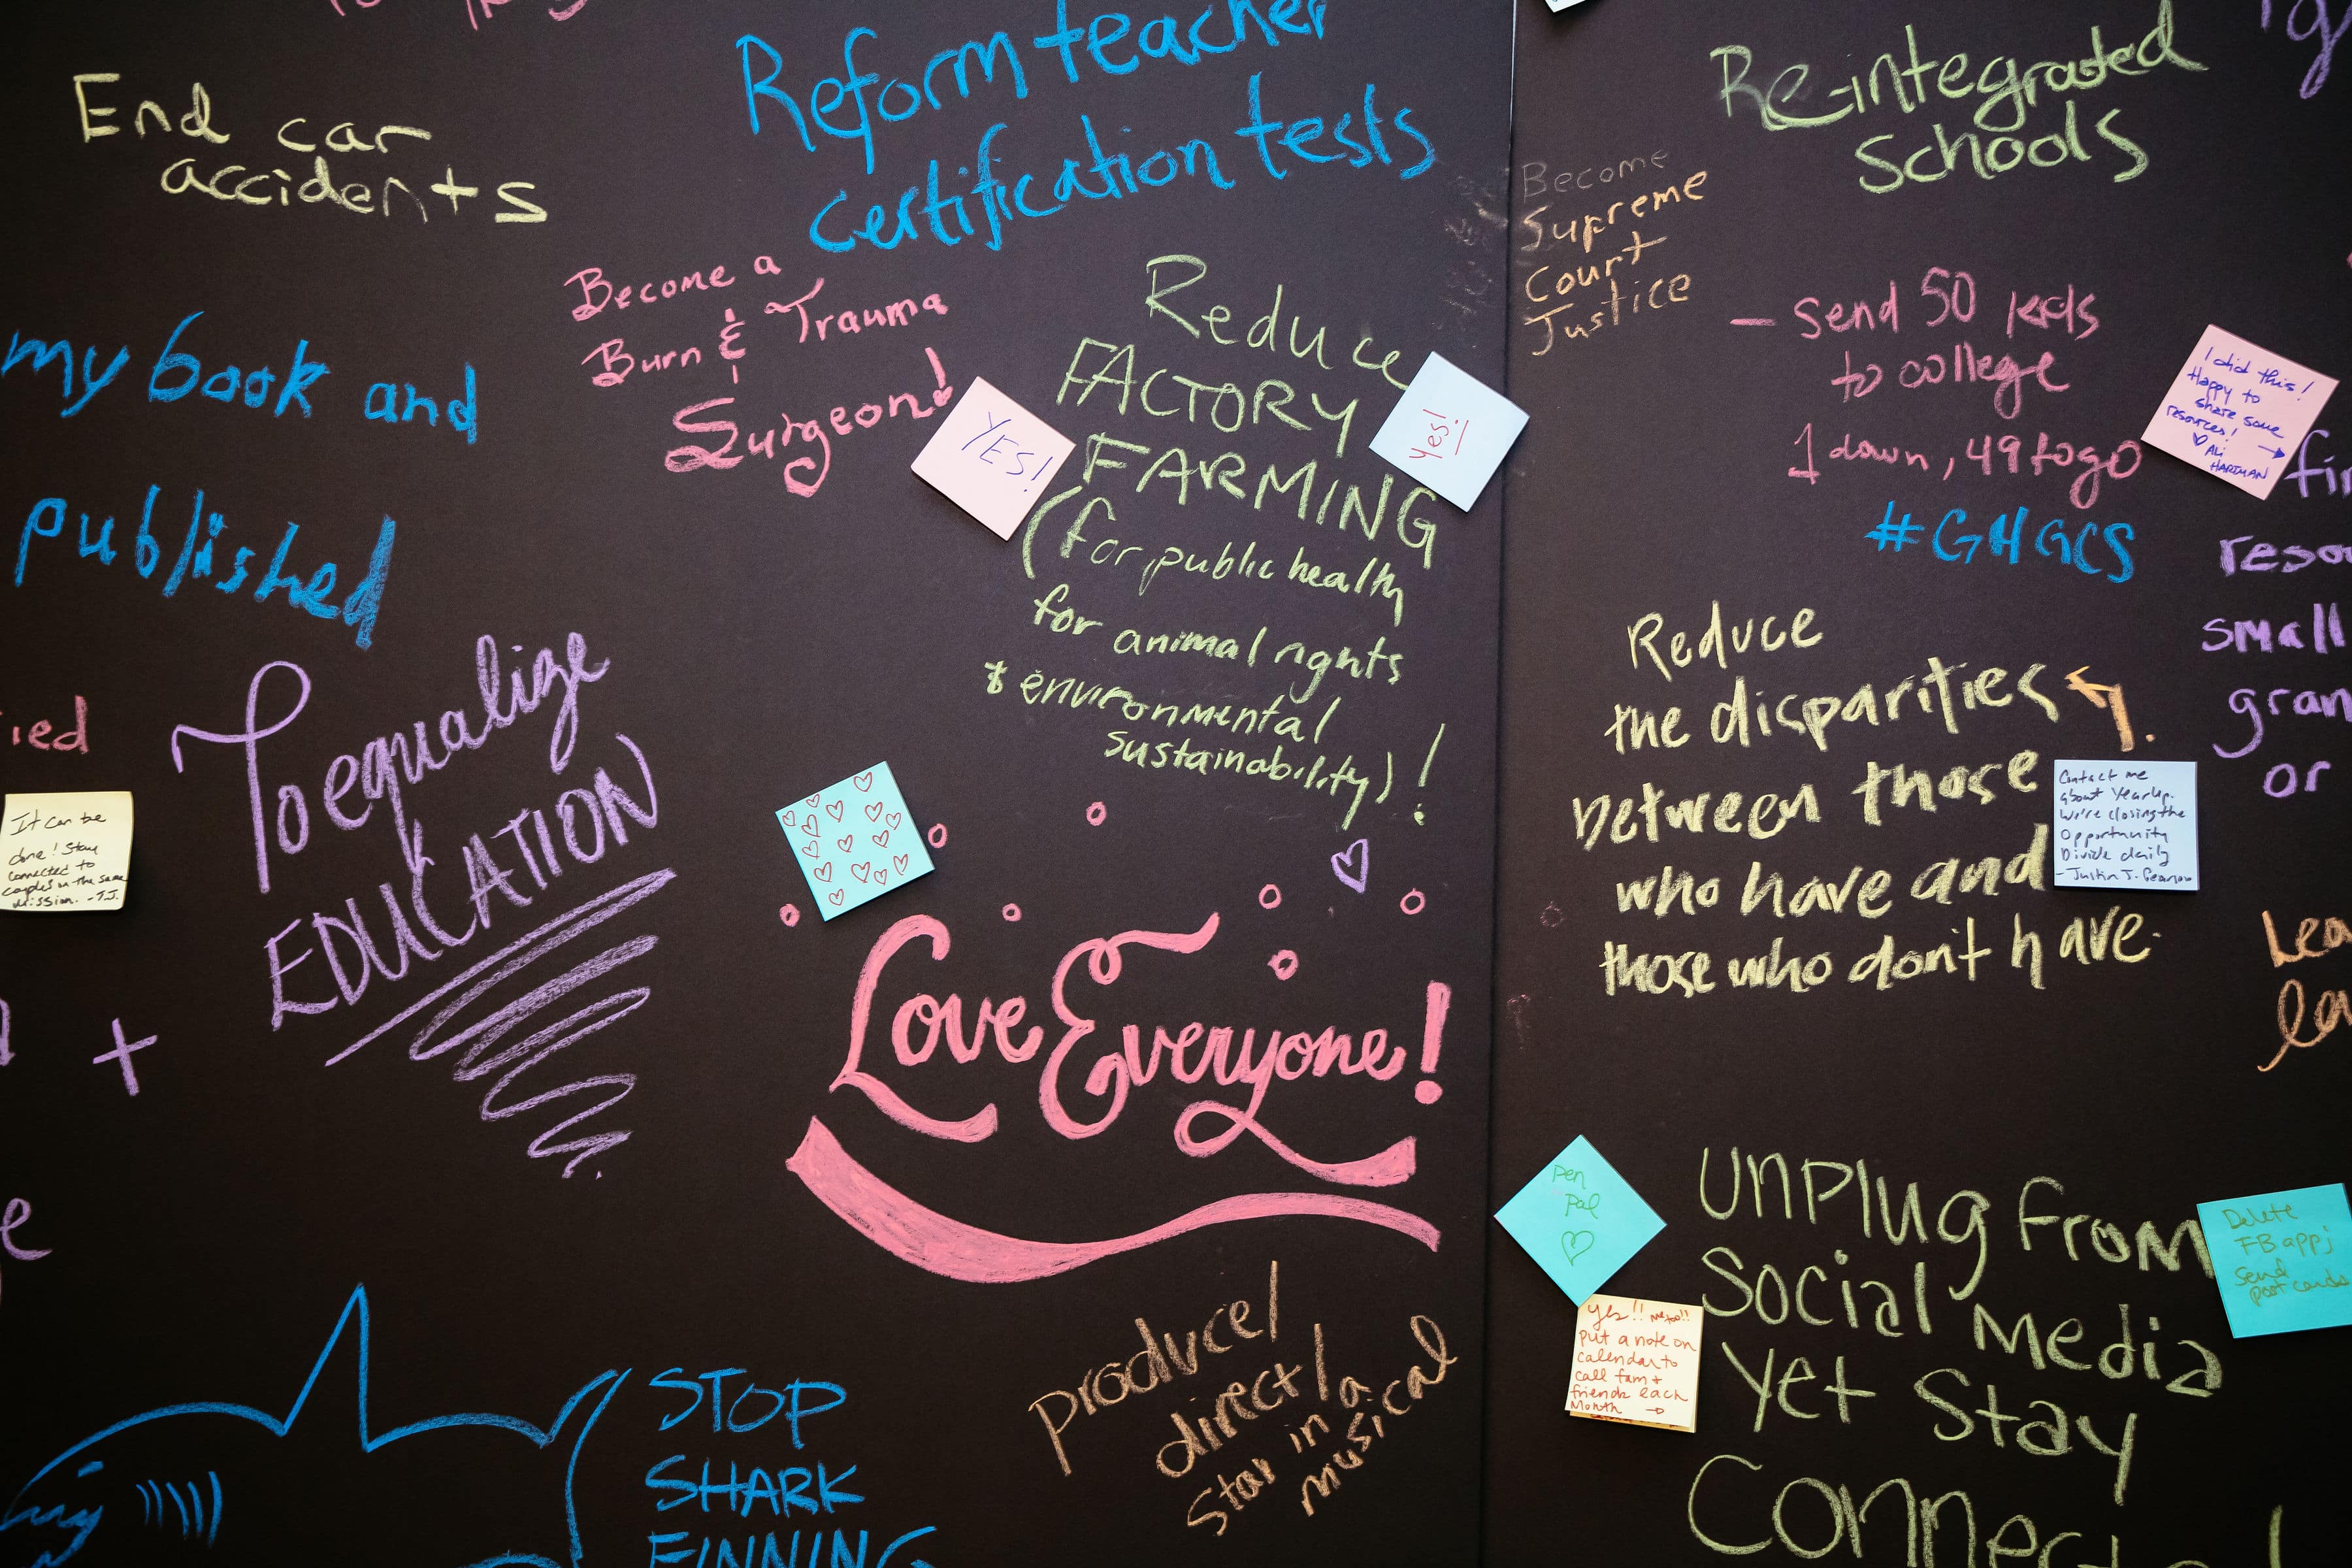 End car
accidents
Reform teacher
certification tests
Re-integrated
Schools
Become
Supreme
Court
Justice
Become a
Burn & Trauma
Surgeon!
my book and
published
YES!
Reduce
FACTORY
FARMING
(for public health
for animal rights
& environmental
sustainability)!
Yes!
- Send 50 kids
to college
1 down, 49 to go
#GHGCS
I did this!
Happy to
share some
resources!
Ali
HARTMAN
small
or
To equalize
EDUCATION
ied
It can be
done! Stay
connected to
couples in the same
mission. -T.J.
+
e
Reduce
the disparities
between those
who have and
those who don't have.
Contact me
about YearUp.
We're closing the
Opportunity
Divide daily
- Justin J.
Love Everyone!
pen
pal
yes!! me too!!
put a note on
calendar to
call fam +
friends each
Month →
UNPlug from
Social Media
Yet Stay
Connected
Delete
FB app;
Send
post cards
STOP
SHARK
FINNING
produce/
direct/
star in a
musical